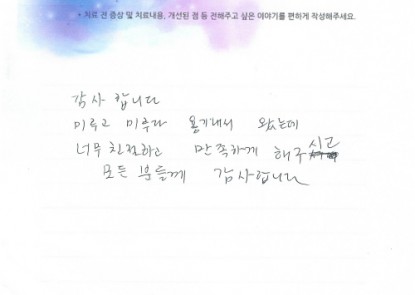 * 치료 전 증상 및 치료내용, 개선된 점 등 전해주고 싶은 이야기를 편하게 작성해주세요.
감사 합니다
미루고 미루다 용기내서 왔는데
너무 친절하고 만족하게 해주시고
모든 분들께 감사합니다